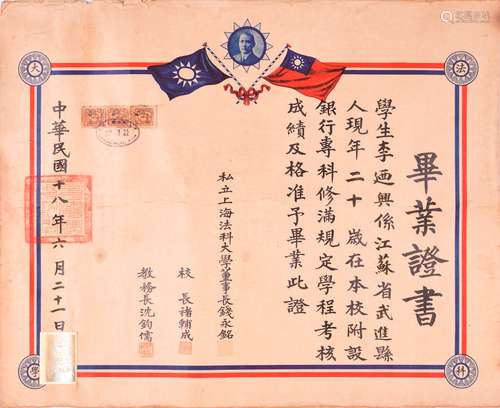 畢業證書
學生李迺興係江蘇省武進縣
人現年二十歲在本校附設
銀行專科修滿規定學程考核
成績及格准予畢業此證
私立上海法科大學董事長錢永銘
校長褚輔成
教務長沈鈞儒
中華民國十八年六月二十一日
大
法
學
科